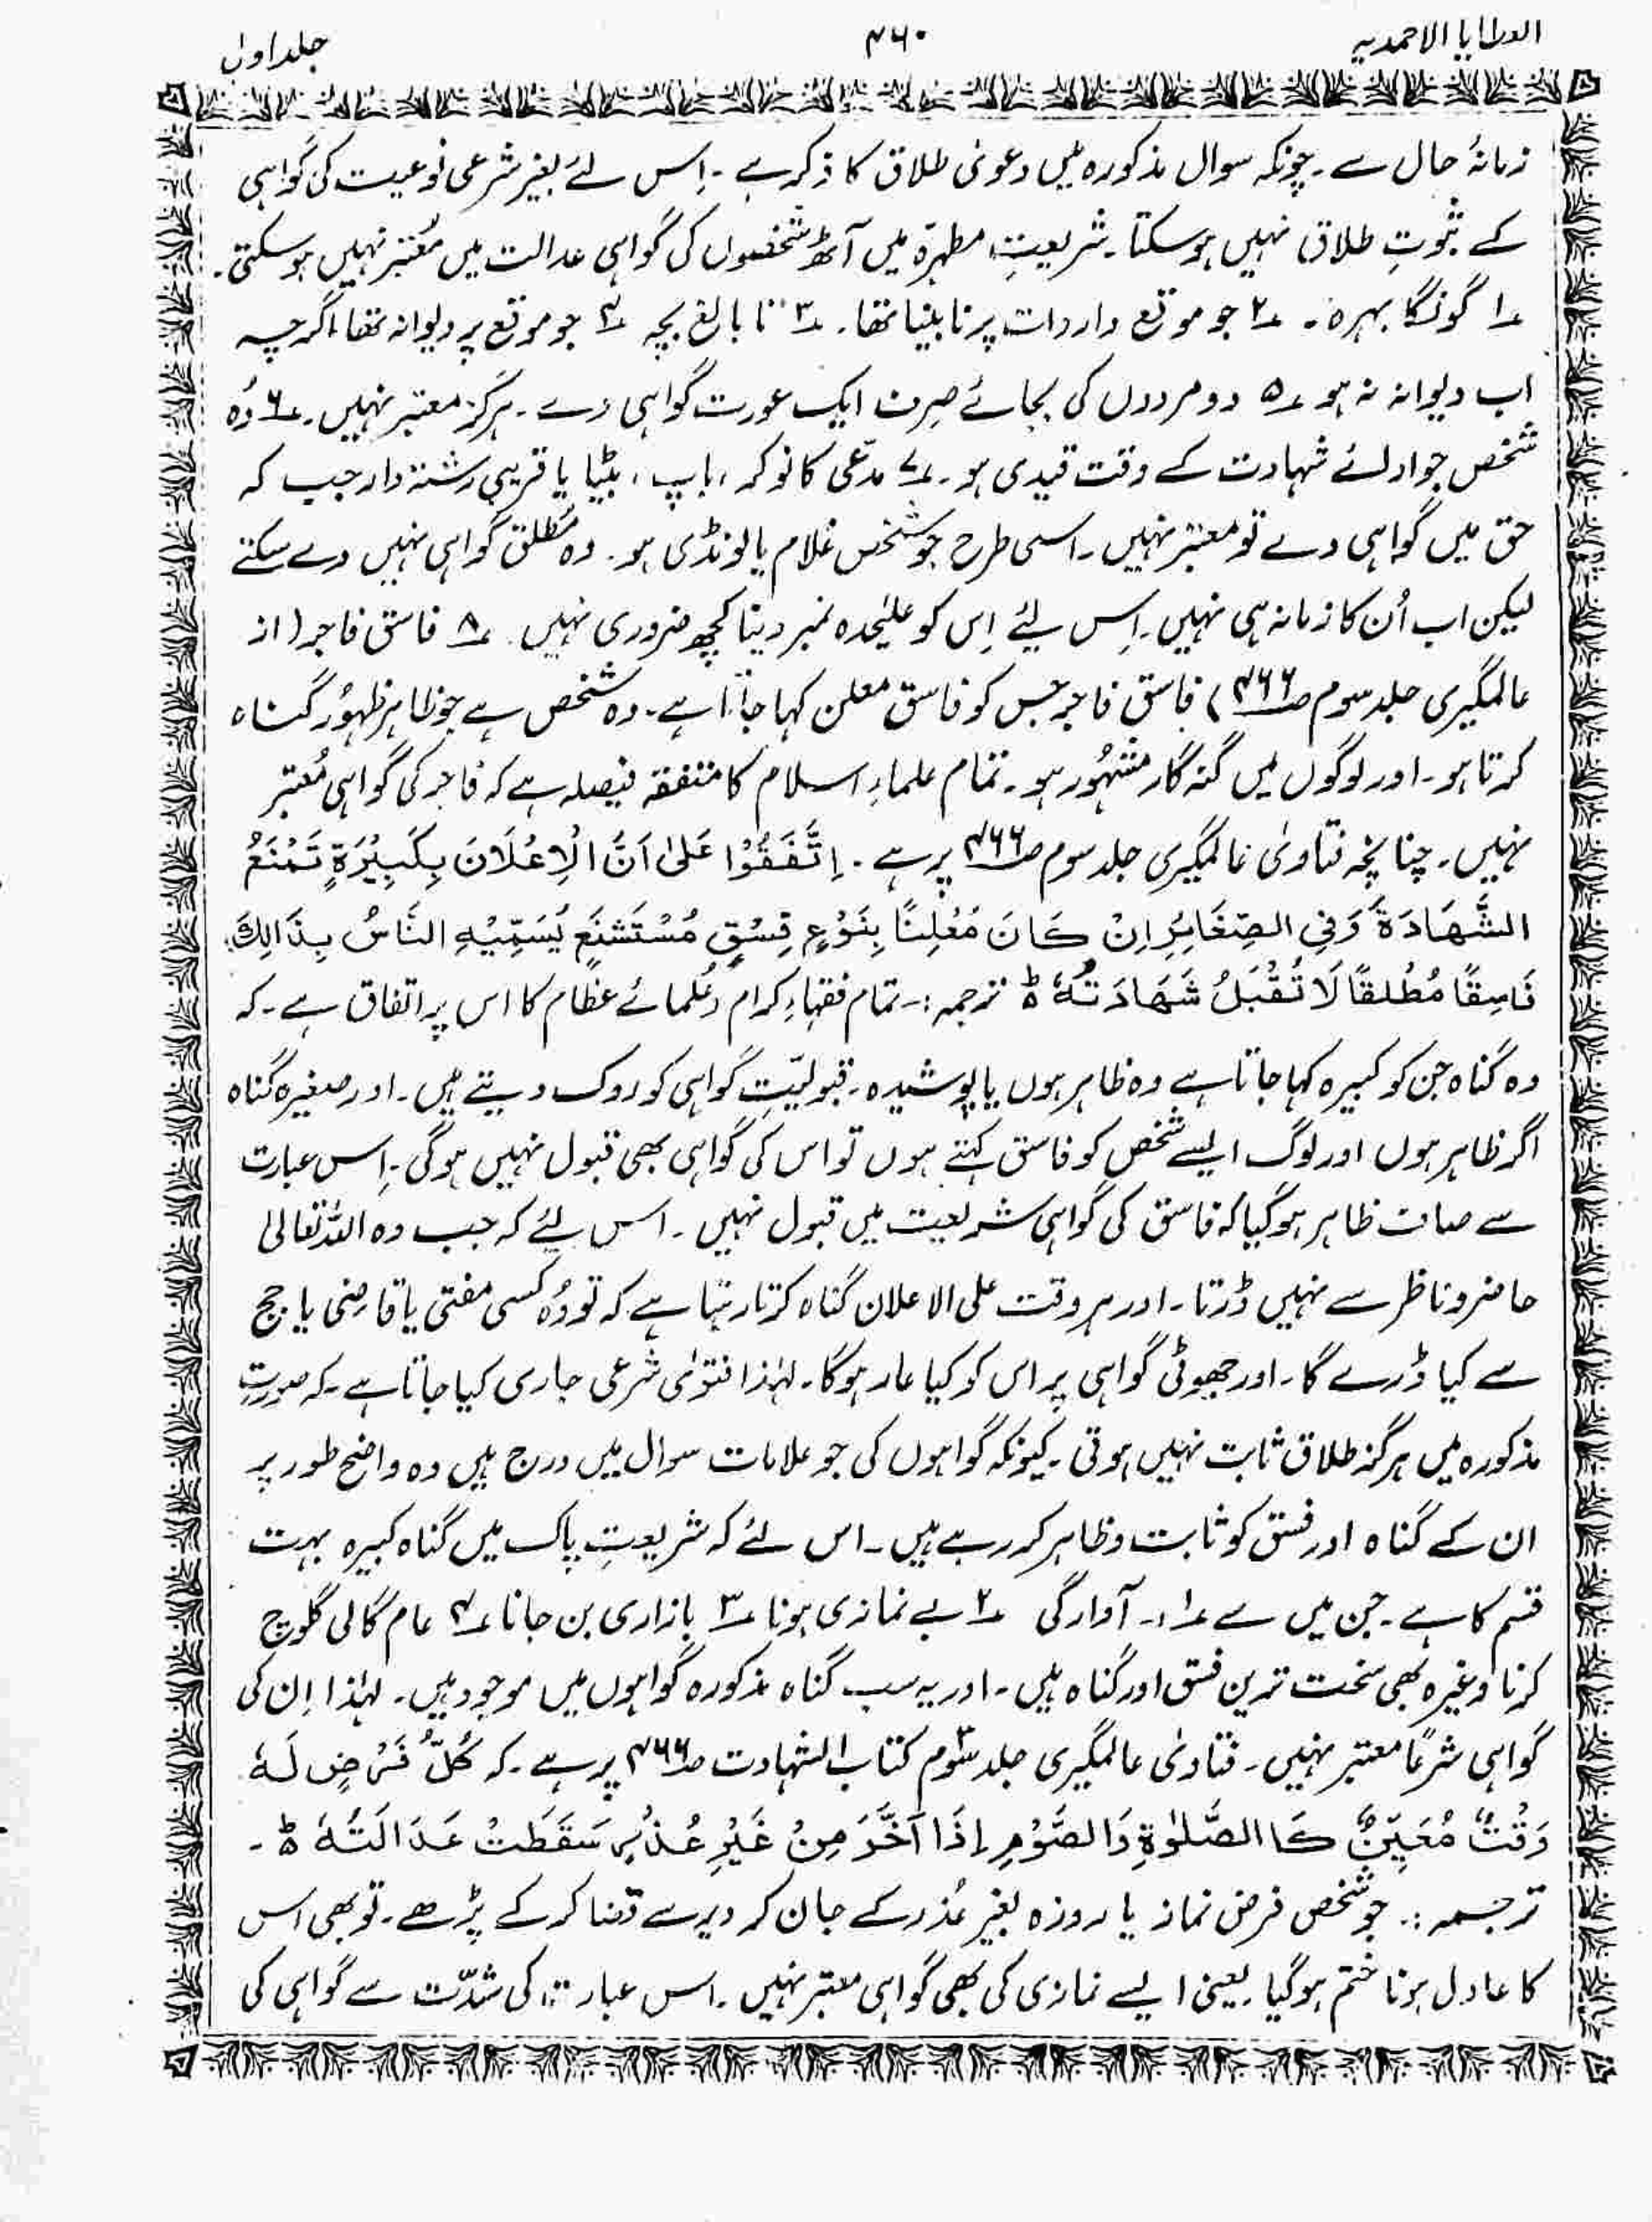 العطایا الاحمدیہ
۴۶۰
جلد اول
زمانۂ حال سے۔ چونکہ سوال مذکورہ میں دعویٰ طلاق کا ذکر ہے۔ اِس لئے بغیر شرعی نوعیت کی گواہی
کے ثبوتِ طلاق نہیں ہو سکتا۔ شریعتِ مطہرہ میں آٹھ شخصوں کی گواہی عدالت میں معتبر نہیں ہو سکتی۔
۱؎ گونگا بہرہ۔ ۲؎ جو موقع واردات پر نابینا تھا۔ ۳؎ نا بالغ بچہ ۴؎ جو موقع پر دیوانہ تھا، اگرچہ
اب دیوانہ نہ ہو ۵؎ دو مردوں کی بجائے صِرف ایک عورت گواہی دے۔ ہرگز معتبر نہیں۔ ۶؎ وُہ
شخص جو ادائے شہادت کے وقت قیدی ہو۔ ۷؎ مدّعی کا نوکر، باپ، بیٹا یا قریبی رشتہ دار جب کہ
حق میں گواہی دے تو معتبر نہیں۔ اسی طرح جو شخص غلام یا لونڈی ہو۔ وہ مُطلق گواہی نہیں دے سکتے
لیکن اب اُن کا زمانہ ہی نہیں۔ اِس لیئے اِس کو علیٰحدہ نمبر دینا کچھ ضروری نہیں۔ ۸؎ فاسق فاجر (از
عالمگیری جلد سوم صـ۴۶۶) فاسق فاجر جس کو فاسق معلن کہا جاتا ہے۔ وہ شخص ہے جو ظاہر ظہُور گناہ
کرتا ہو۔ اور لوگوں میں گنہ گار مشہُور ہو۔ تمام علماءِ اسلام کا متفقہ فیصلہ ہے کہ فاجر کی گواہی مُعتبر
نہیں۔ چنانچہ فتاویٰ عالمگیری جلد سوم صـ۴۶۶ پر ہے۔ اِتَّفَقُوْا عَلیٰ اَنَّ الْاِعْلَانَ بِکَبِیْرَۃٍ تَمْنَعُ
الشَّھَادَۃَ وَفِی الصِّغَایُرِ اِنْ کَانَ مَعْلِنًا بِنَوْعِ فِسْقٍ مُسْتَشْنَعٍ یُسَمِّیْہِ النَّاسُ بِذَالِکَ
فَاسِقًا مُطْلقًا لَا تُقْبَلُ شَھَادَتُہٗ ط ترجمہ:۔ تمام فقہاءِ کرام و عُلمائے عظام کا اس پر اتفاق ہے۔ کہ
وہ گناہ جن کو کبیرہ کہا جاتا ہے وہ ظاہر ہوں یا پوشیدہ۔ قبولیّتِ گواہی کو روک دیتے ہیں۔ اور صغیرہ گناہ
اگر ظاہر ہوں اور لوگ ایسے شخص کو فاسق کہتے ہوں تو اس کی گواہی بھی قبول نہیں ہوگی۔ اِس عبارت
سے صاف ظاہر ہو گیا کہ فاسق کی گواہی شریعت میں قبول نہیں۔ اس لیئے کہ جب وہ اللہ تعالیٰ
حاضر و ناظر سے نہیں ڈرتا۔ اور ہر وقت علی الاعلان گناہ کرتا رہتا ہے کہ تو وُہ کسی مفتی یا قاضِی یا جج
سے کیا ڈرے گا۔ اور جھوٹی گواہی پر اس کو کیا عار ہوگا۔ لہٰذا فتوٰی شرعی جاری کیا جاتا ہے۔ کہ صورتِ
مذکورہ میں ہرگز طلاق ثابت نہیں ہوتی۔ کیونکہ گواہوں کی جو علامات سوال میں درج ہیں وہ واضح طور پر
ان کے گناہ اور فسق کو ثابت و ظاہر کر رہے ہیں۔ اس لئے کہ شریعتِ پاک میں گناہ کبیرہ بہت
قسم کا ہے۔ جن میں سے ۱؎۔ آوارگی ۲؎ بے نمازی ہونا ۳؎ بازاری بن جانا ۴؎ عام گالی گلوچ
کرنا وغیرہ بھی سخت ترین فسق اور گناہ ہیں۔ اور یہ سب گناہ مذکورہ گواہوں میں موجود ہیں۔ لہٰذا اِن کی
گواہی شرعًا معتبر نہیں۔ فتاویٰ عالمگیری جلد سوم کتاب الشہادت صـ۴۶۶ پر ہے۔ کہ کُلُّ فَرْضٍ لَہٗ
وَقْتٌ مُعَیِّنٌ کَا الصَّلوٰۃِ وَالصَّوْمِ اِذَا اَخَّرَ مِنْ غَیْرِ عُذْرٍ سَقَطَتْ عَدَالَتُہٗ ط۔
ترجمہ:۔ جو شخص فرض نماز یا روزہ بغیر عُذر کے جان کر دیر سے قضا کر کے پڑھے۔ تو بھی اس
کا عادل ہونا ختم ہو گیا۔ یعنی ایسے نمازی کی بھی گواہی معتبر نہیں۔ اس عبارت کی شدّت سے گواہی کی